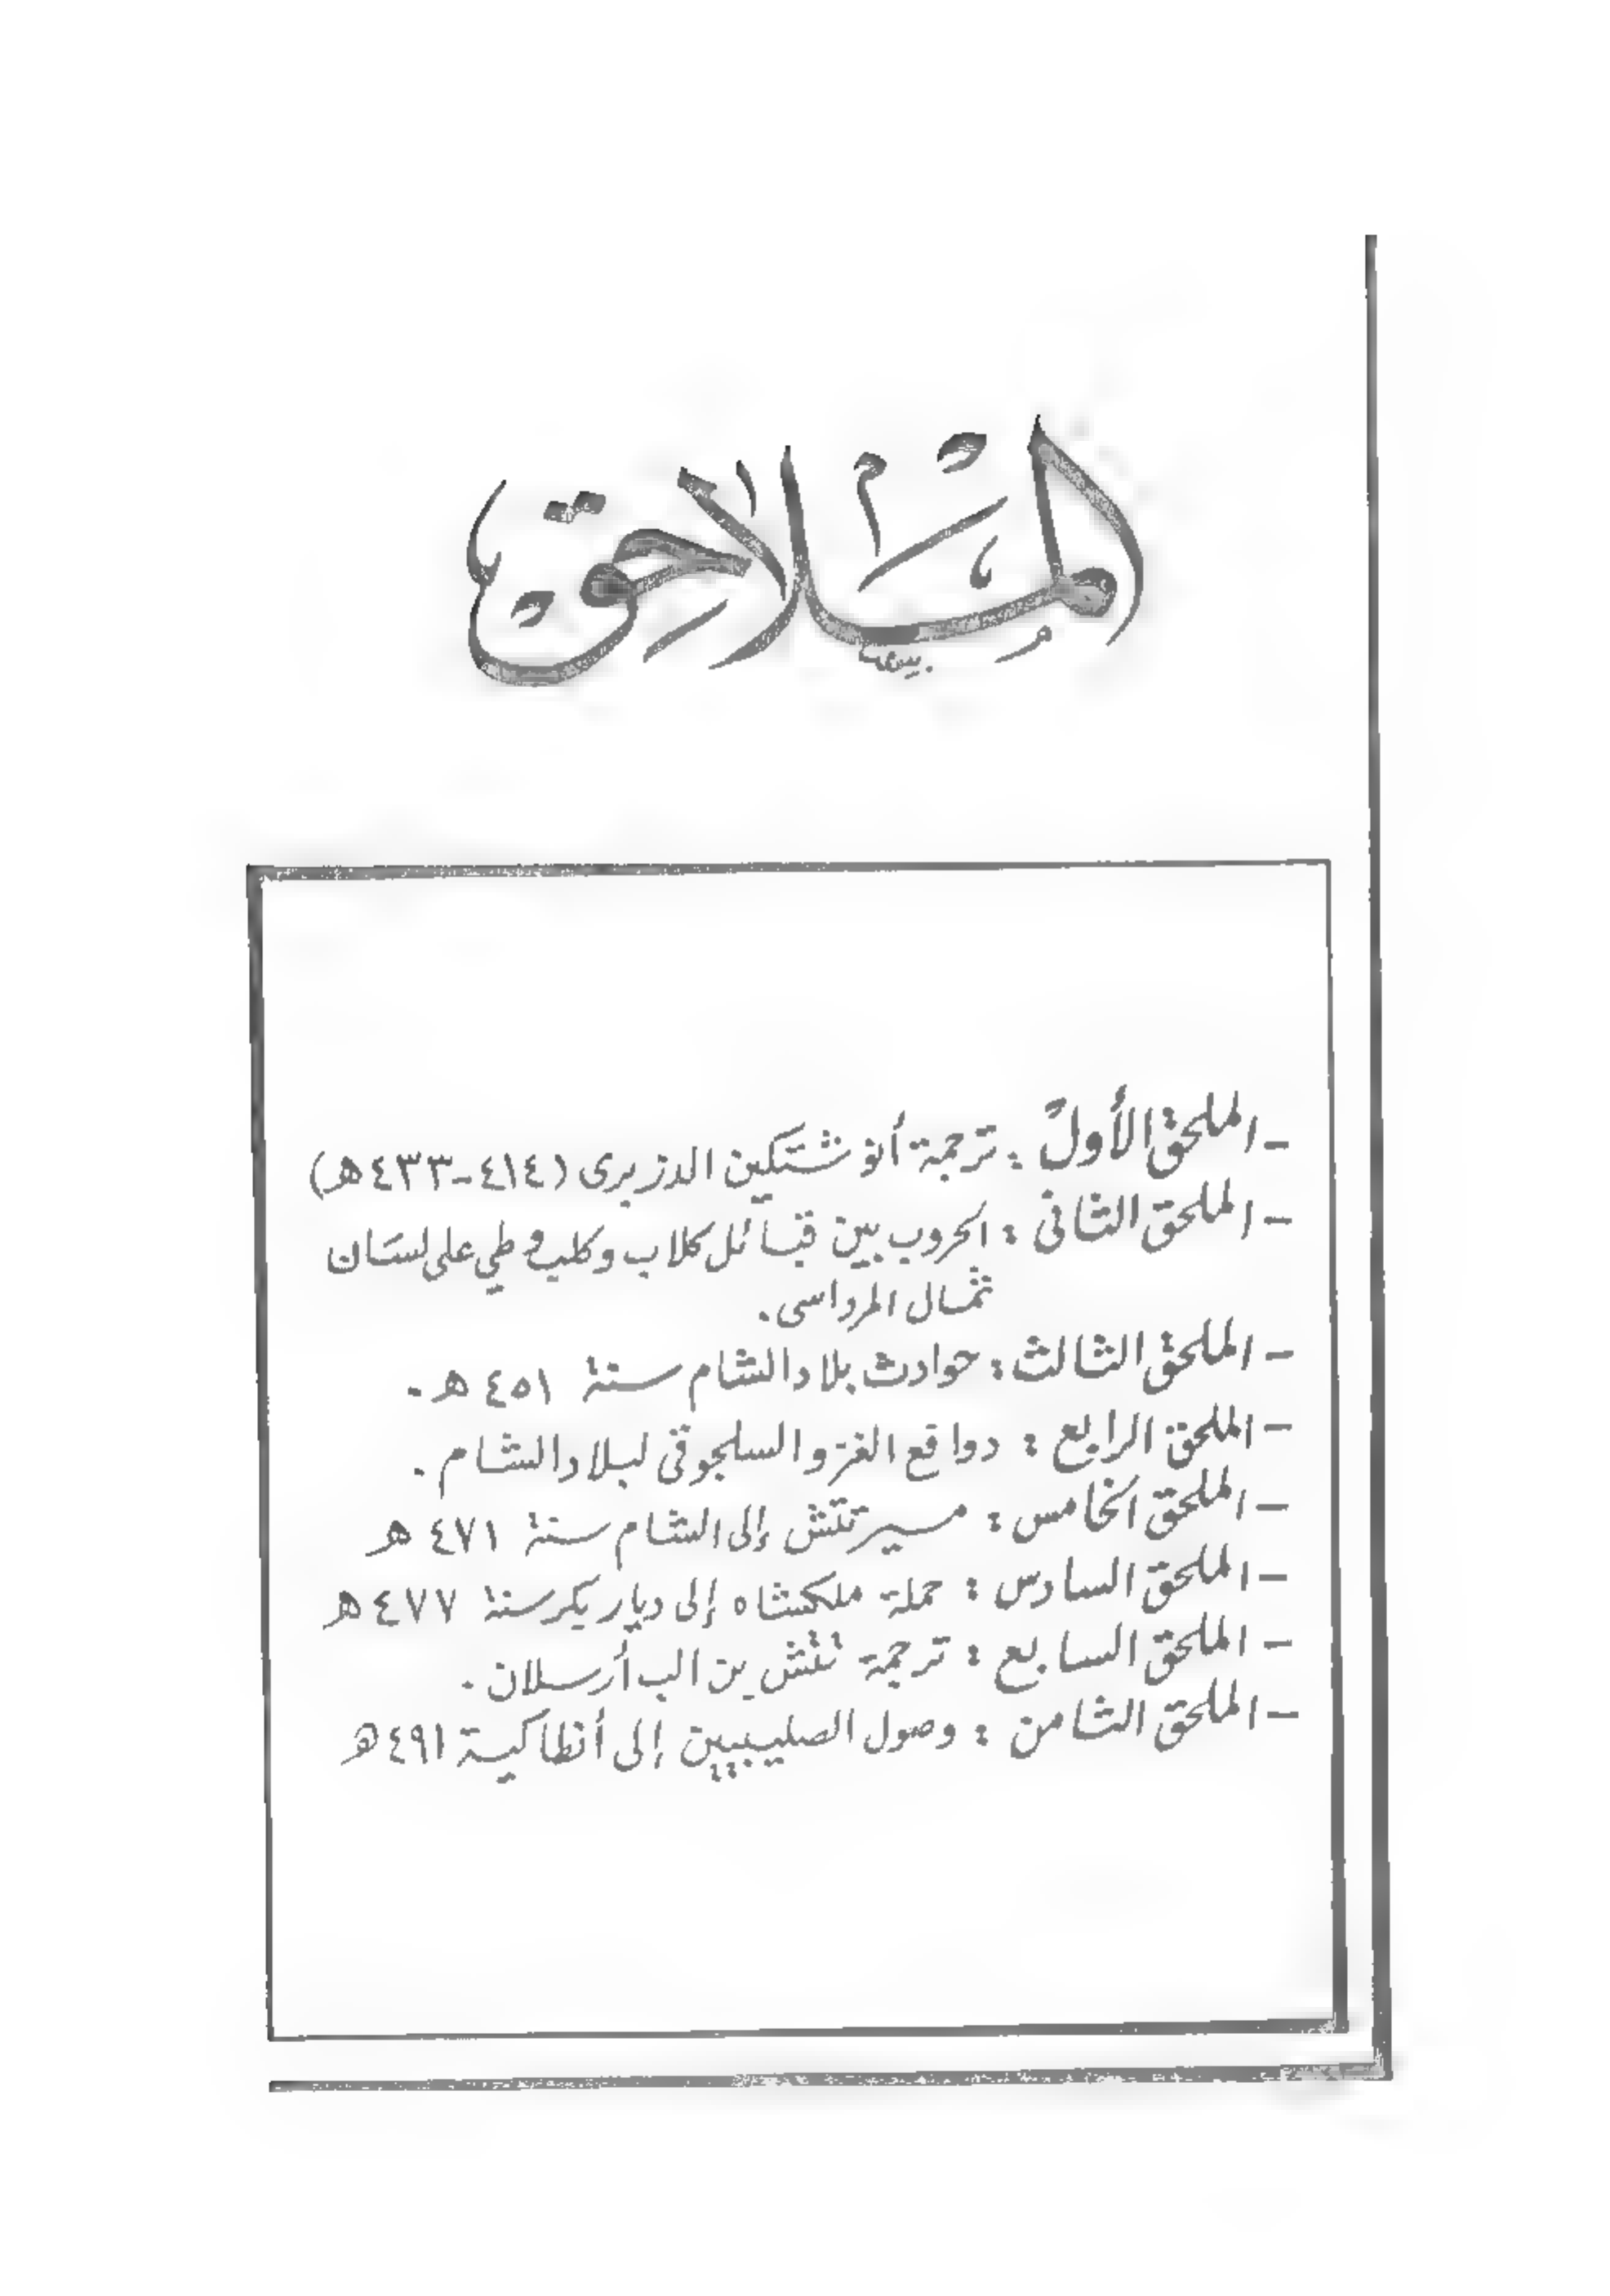 الملاحق
- الملحق الأول : ترجمة أنوشتكين الدزبرى (٤١٤-٤٣٣هـ)
- الملحق الثانى : الحروب بين قبائل كلاب وكلب و طي على لسان
ثمال المرداسى .
- الملحق الثالث : حوادث بلاد الشام سنة ٤٥١ هـ .
- الملحق الرابع : دوافع الغزو السلجوقى لبلاد الشام .
- الملحق الخامس : مسير تتش إلى الشام سنة ٤٧١ هـ
- الملحق السادس : حملة ملكشاه إلى ديار بكر سنة ٤٧٧ هـ
- الملحق السابع : ترجمة تتش بن الب أرسلان .
- الملحق الثامن : وصول الصليبيين إلى أنطاكية ٤٩١هـ